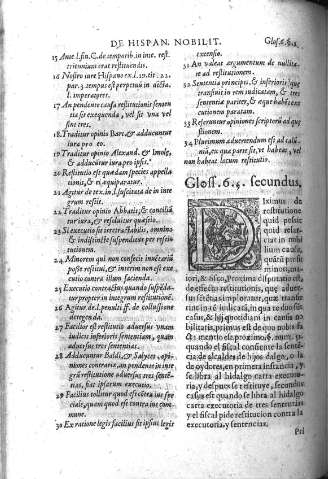 DE HISPAN. NOBILIT.
Gloss. 6. §. 2.
15 Ante l. fin. C. de temporib. in inte. rest.
triennium erat restituendi.
16 Nostro iure Hispano ex l. 10. tit. 22.
par. 3. tempus est perpetuũ in
l. imperatores.
17 An pendente causa restitutionis senten
tia sit exequenda, vel siue vna vel
sint tres.
18 Traditur opinio Bart. & adducuntur
iura pro ea.
19 Traditur opinio Alexand. & Imole,
& adducitur iura pro ipsis.
20 Restitutio est quædam species appella-
tionis, & ei æquiparatur.
21 Agitur de tex. in l. suscitata. de in inte
grum restit.
22 Traditur opinio Abbatis, & concilia
tur iura, & resoluitur quæstio.
23 Si executio sit iniectrastanda, omnino
& indistincte suspenditur per resti
tutionem.
24 Minorem qui non confecit inuentariũ
posse restitui, & interim non est exe
cutio contra illum facienda.
25 Executio contractus quando suspẽda-
tur propter in integrum restitutionẽ.
26 Agitur de l. penulti. ff. de collusione
detegenda.
27 Facilior est restitutio aduersus vnam
iudicis inferioris sententiam, quam
aduersus tres sententias.
28 Adducuntur Baldi, & Salycet. opi-
niones contrariæ, an pendente in inte
grũ restitutione aduersus tres senten-
tias, fiat ipsarum executio.
29 Facilius tollitur quod est contra ius spe
ciale, quam quod est contra ius com
mune.
30 Ex ratione legis facilius fit ipsius legis
extensio.
31 An valeat argumentum de nullita-
te ad restitutionem.
32 Sententia principis, & inferioris, quæ
transiuit in rem iudicatam, & tres
sententiæ pariter, & æque habent exe
cutionem paratam.
33 Referuntur opiniones scriptorũ ad quæ
stionem.
34 Plurimum aduertendum est ad calũ-
niã, ex qua parte sit, vt habeat, vel
non habeat locum restitutio.
Gloss. 6. §. secundus.
DIximus de
restitutione
quid possit
quid refor-
mat in nobi
lium causa,
quãtũ præsẽ
ti minora,
tori, & fisco. Proxima disputatio est,
de effectu restitutionis, quæ aduer-
sus sentẽtias impetratur, quæ transie-
rint in rẽ iudicatã, in duobus tñ
casib. & his quotidian in causa no-
bilitatis, primus est de quo nobis fa
cta mentio est proximos, num. 31.
quando el fiscal consiente la senten-
cia de alcaldes de hijos dalgo, o la
de oydores, en primera instancia, y
se libra al hidalgo carta executo-
ria, y despues se restituye, secundus
casus est quando se libra al hidalgo
carta executoria de tres sentencias
y el fiscal pide restitucion contra la
executoria, y sentencias.
Pri